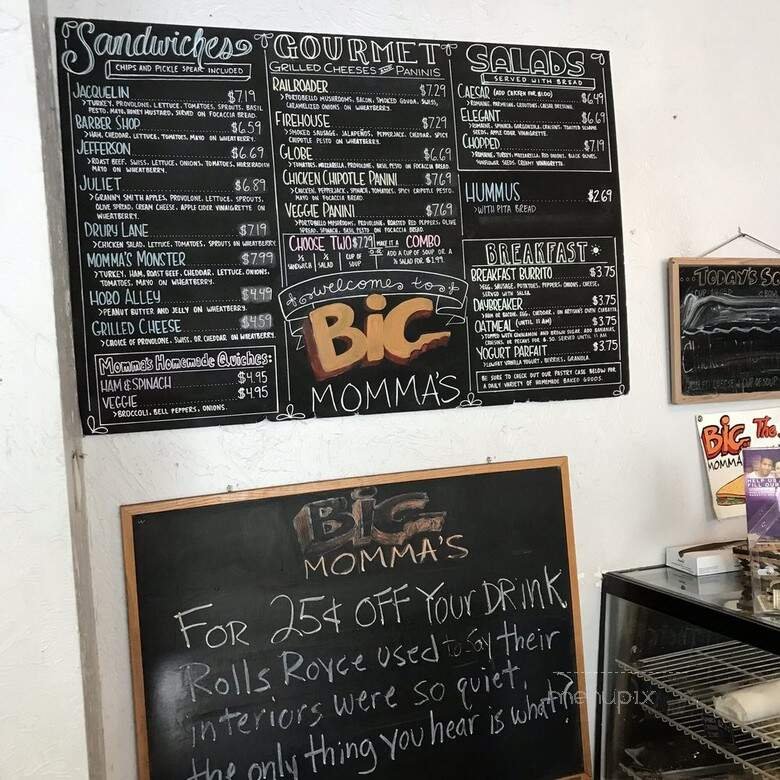 Sandwiches
CHIPS AND PICKLE SPEAR INCLUDED
JACQUELIN $7.19
>TURKEY, PROVOLONE, LETTUCE, TOMATOES, SPROUTS, BASIL
PESTO, MAYO, HONEY MUSTARD, SERVED ON FOCACCIA BREAD.
BARBER SHOP $6.59
>HAM, CHEDDAR, LETTUCE, TOMATOES, MAYO ON WHEATBERRY.
JEFFERSON $6.69
>ROAST BEEF, SWISS, LETTUCE, ONIONS, TOMATOES, HORSERADISH
MAYO ON WHEATBERRY.
JULIET $6.89
>GRANNY SMITH APPLES, PROVOLONE, LETTUCE, SPROUTS,
OLIVE SPREAD, CREAM CHEESE, APPLE CIDER VINAIGRETTE ON
WHEATBERRY.
DRURY LANE $7.19
>CHICKEN SALAD, LETTUCE, TOMATOES, SPROUTS ON WHEATBERRY
MOMMA'S MONSTER $7.99
>TURKEY, HAM, ROAST BEEF, CHEDDAR, LETTUCE, ONIONS,
TOMATOES, MAYO ON WHEATBERRY.
HOBO ALLEY $4.49
>PEANUT BUTTER AND JELLY ON WHEATBERRY.
GRILLED CHEESE $4.59
>CHOICE OF PROVOLONE, SWISS, OR CHEDDAR ON WHEATBERRY.
Momma's Homemade Quiches:
HAM & SPINACH $4.95
VEGGIE $4.95
>BROCCOLI, BELL PEPPERS, ONIONS.
GOURMET
GRILLED CHEESES AND PANINIS
RAILROADER $7.29
>PORTOBELLO MUSHROOMS, BACON, SMOKED GOUDA, SWISS,
CARAMELIZED ONIONS ON WHEATBERRY.
FIREHOUSE $7.29
>SMOKED SAUSAGE, JALAPEÑOS, PEPPERJACK, CHEDDAR, SPICY
CHIPOTLE PESTO ON WHEATBERRY.
GLOBE $6.69
>TOMATOES, MOZZARELLA, PROVOLONE, BASIL PESTO ON FOCACCIA BREAD.
CHICKEN CHIPOTLE PANINI $7.69
>CHICKEN, PEPPERJACK, SPINACH, TOMATOES, SPICY CHIPOTLE PESTO,
MAYO ON FOCACCIA BREAD.
VEGGIE PANINI $7.69
>PORTOBELLO MUSHROOMS, PROVOLONE, ROASTED RED PEPPERS, OLIVE
SPREAD, SPINACH, BASIL PESTO ON FOCACCIA BREAD.
CHOOSE TWO $7.29
½ SANDWICH ½ SALAD CUP OF SOUP
MAKE IT A COMBO
ADD A CUP OF SOUP OR A
½ SALAD FOR $1.99.
welcome to
BIG
MOMMA'S
SALADS
SERVED WITH BREAD
CAESAR (ADD CHICKEN FOR $1.00) $6.49
>ROMAINE, PARMESAN, CROUTONS, CAESAR DRESSING.
ELEGANT $6.69
>ROMAINE, SPINACH, GORGONZOLA, CRAISINS, TOASTED SESAME
SEEDS, APPLE CIDER VINAIGRETTE.
CHOPPED $7.19
>ROMAINE, TURKEY, MOZZARELLA, RED ONIONS, BLACK OLIVES,
SUNFLOWER SEEDS, CREAMY VINAIGRETTE.
HUMMUS $2.69
>WITH PITA BREAD
BREAKFAST
BREAKFAST BURRITO $3.75
>EGG, SAUSAGE, POTATOES, PEPPERS, ONIONS, CHEESE,
SERVED WITH SALSA.
DAYBREAKER $3.75
>HAM OR BACON, EGG, CHEDDAR, ON ARTISAN'S OVEN CIABATTA.
OATMEAL (UNTIL 11 AM) $3.75
>TOPPED WITH CINNAMON AND BROWN SUGAR. ADD BANANAS,
CRAISINS, OR PECANS FOR $.50. SERVED UNTIL 11 AM.
YOGURT PARFAIT $3.75
>LOWFAT VANILLA YOGURT, BERRIES, GRANOLA.
BE SURE TO CHECK OUT OUR PASTRY CASE BELOW FOR
A DAILY VARIETY OF HOMEMADE BAKED GOODS.
TODAY'S SO
BIG The
MOMMA
HELP US
FILL OUR
BIG
MOMMA'S
FOR 25¢ OFF YOUR DRINK
Rolls Royce used to say their
interiors were so quiet,
the only thing you hear is what?
menupix